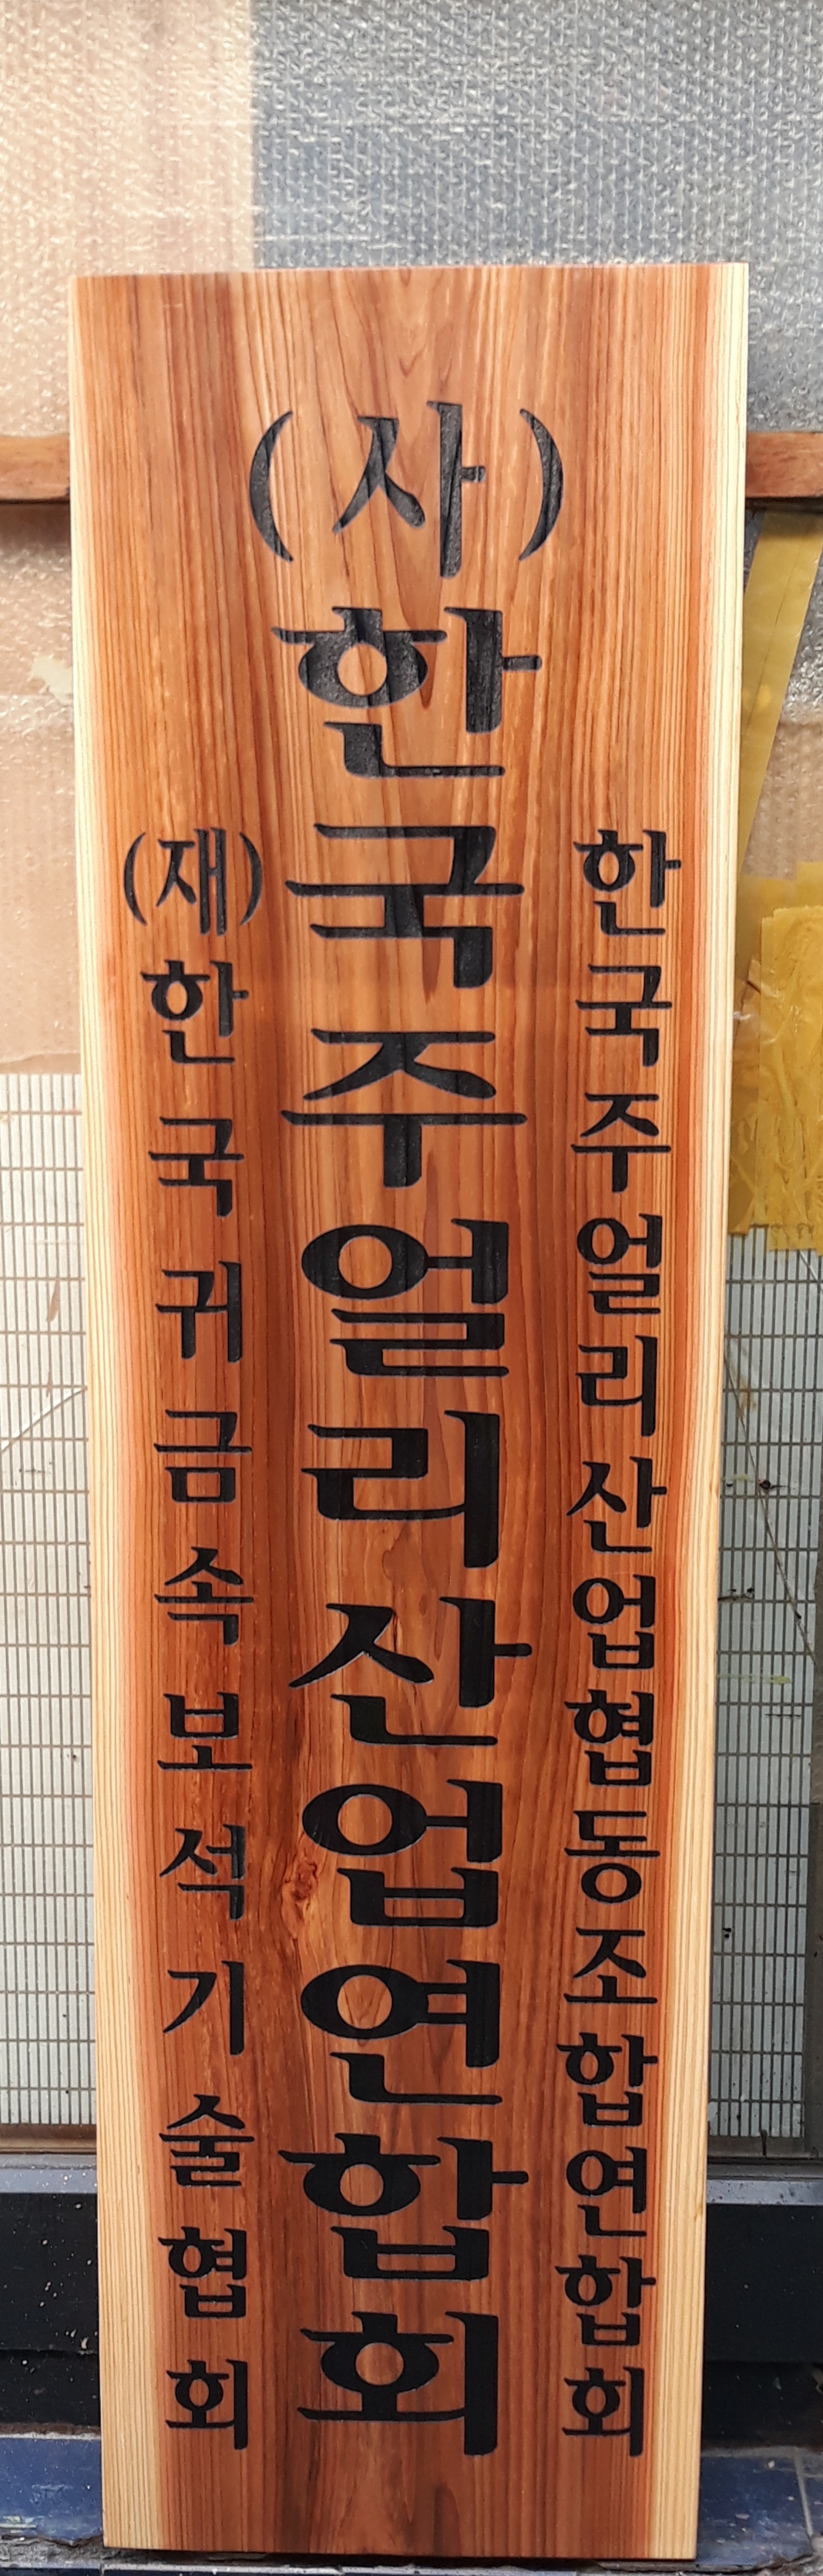 (사)한국주얼리산업연합회
(재)한국귀금속보석기술협회
한국주얼리산업협동조합연합회